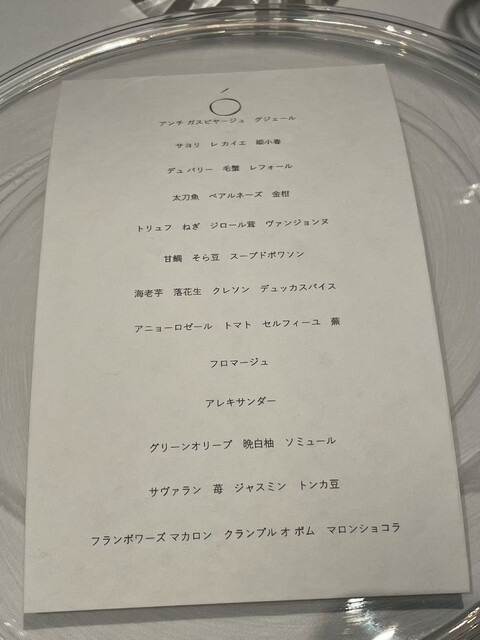 アンチ ガスピヤージュ　グジェール
サヨリ　レ カイエ　姫小春
デュ バリー　毛蟹　レフォール
太刀魚　ベアルネーズ　金柑
トリュフ　ねぎ　ジロール茸　ヴァンジョンヌ
甘鯛　そら豆　スープドポワソン
海老芋　落花生　クレソン　デュッカスパイス
アニョーロゼール　トマト　セルフィーユ　蕪
フロマージュ
アレキサンダー
グリーンオリーブ　晩白柚　ソミュール
サヴァラン　苺　ジャスミン　トンカ豆
フランボワーズ マカロン　クランブル オ ポム　マロンショコラ